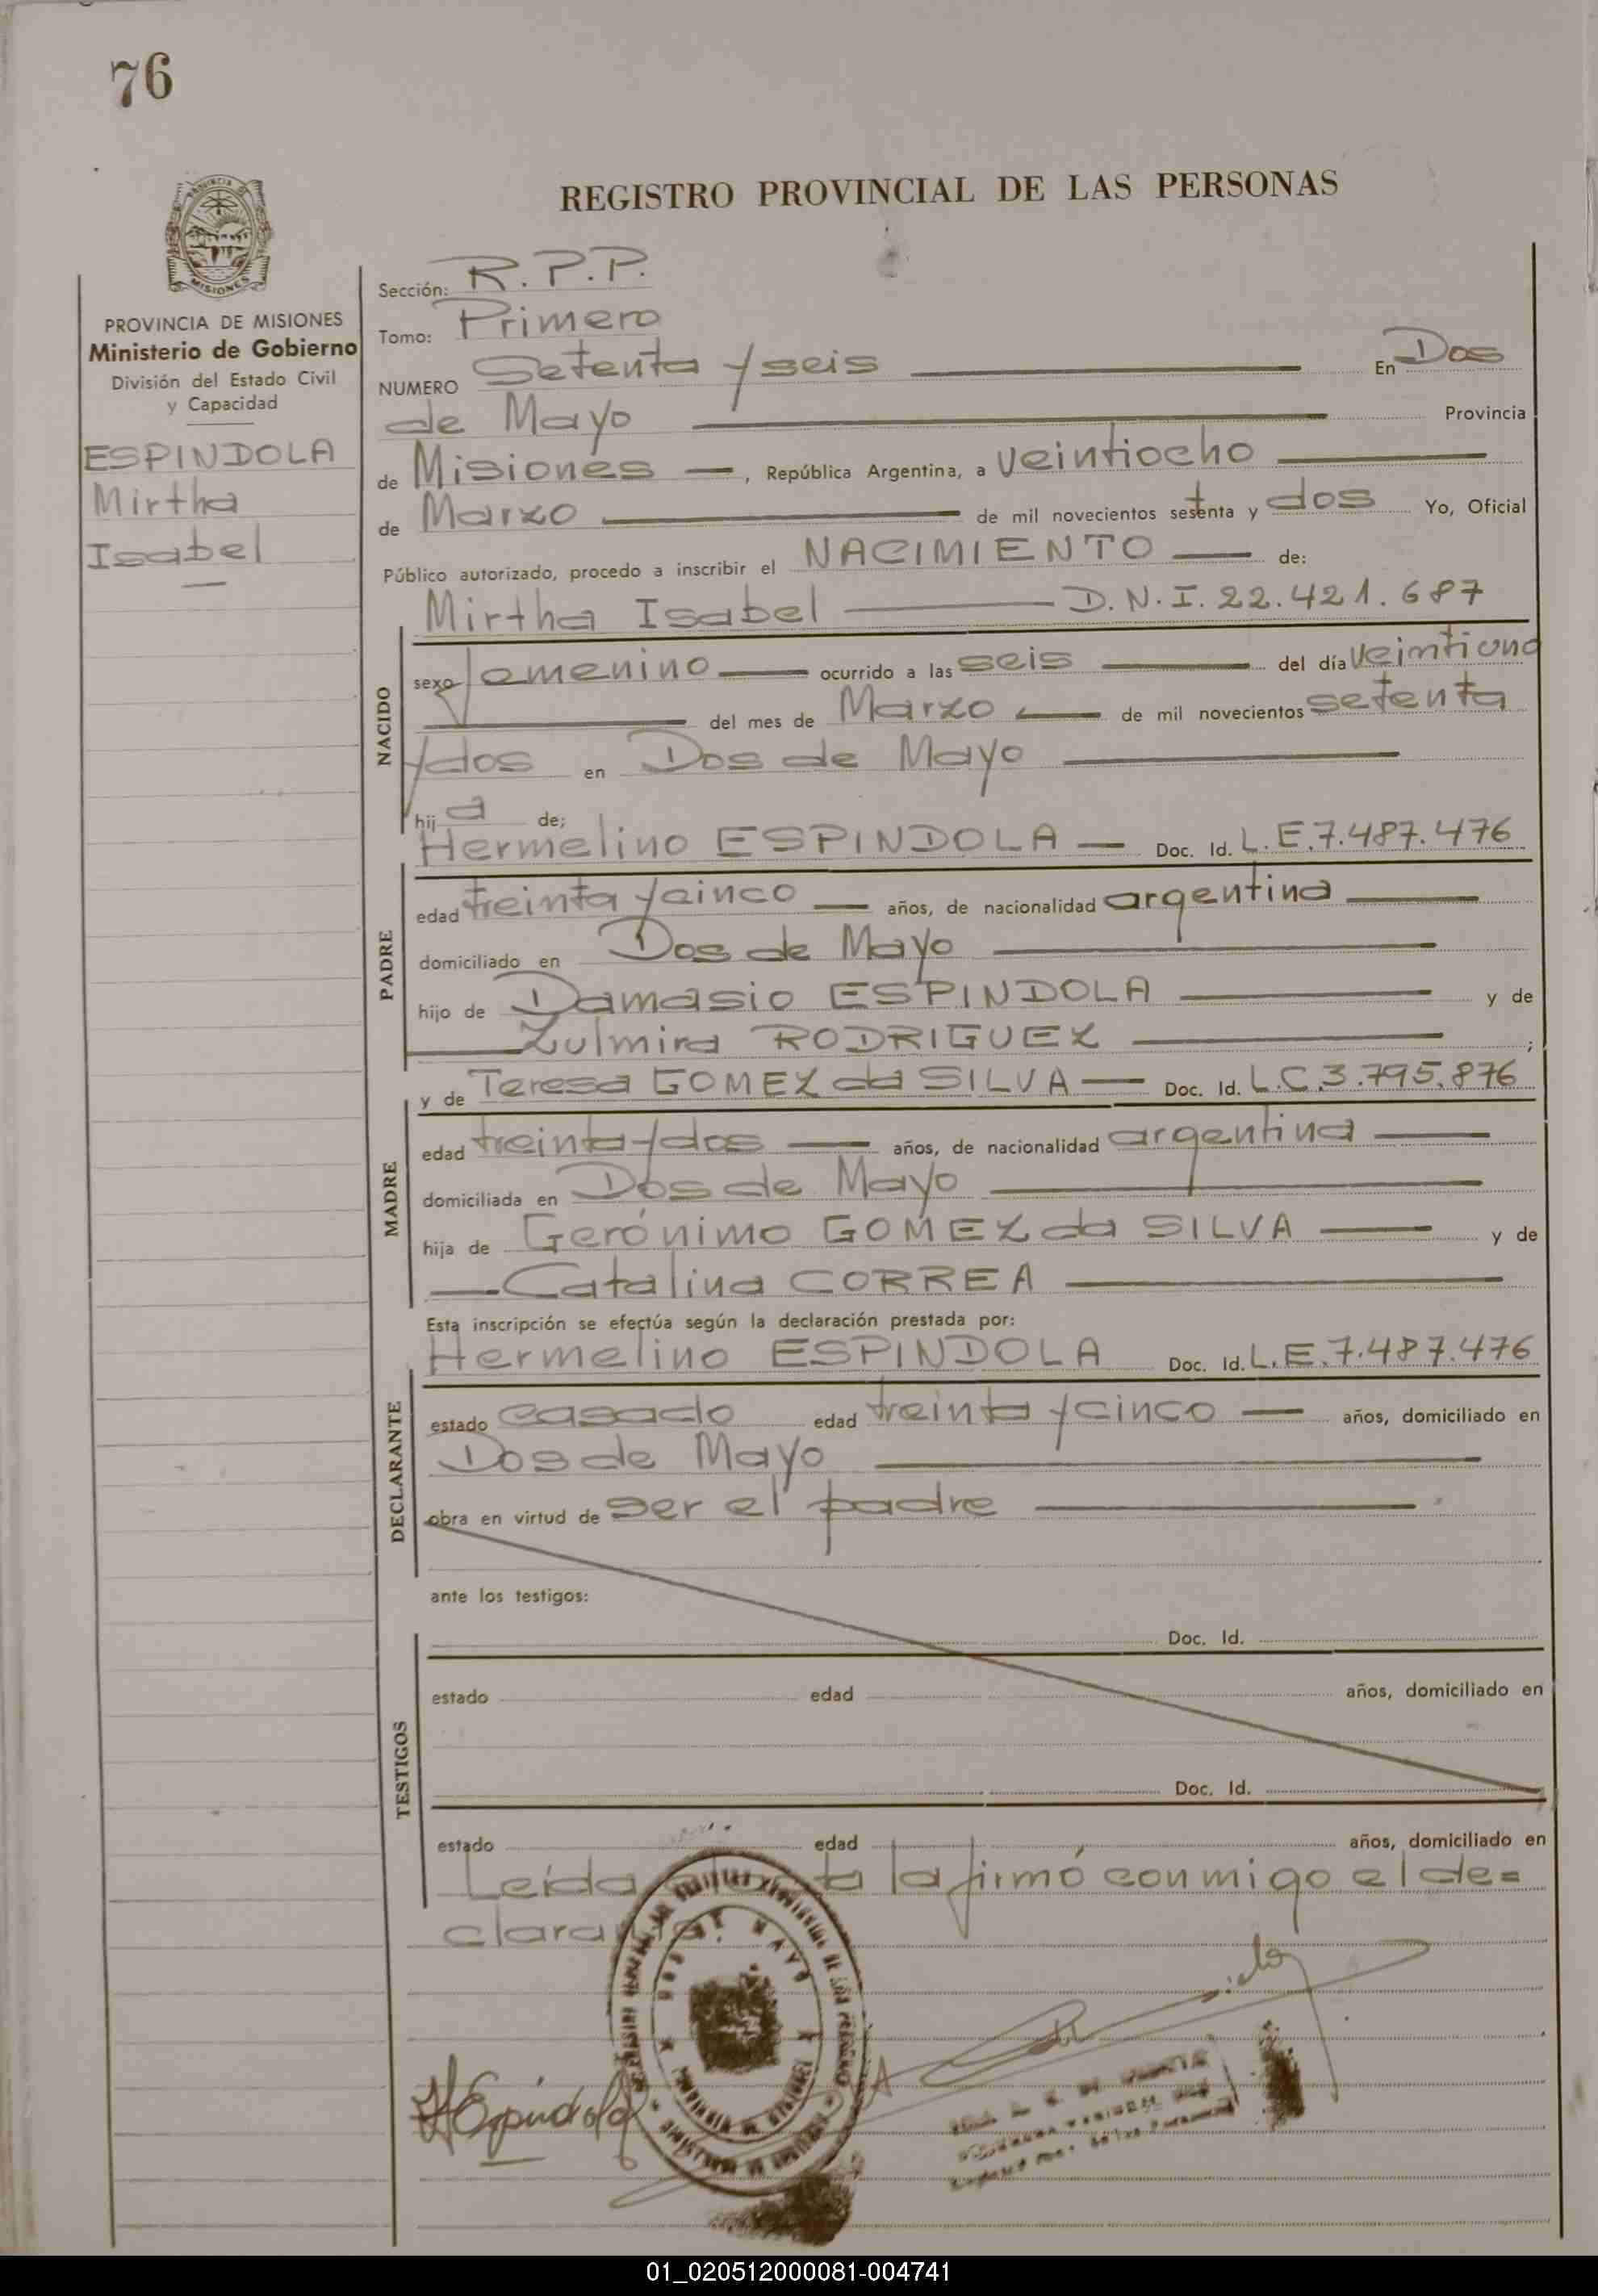 76
REGISTRO PROVINCIAL DE LAS PERSONAS
MISIONES
PROVINCIA DE MISIONES
Ministerio de Gobierno
División del Estado Civil
y Capacidad
ESPINDOLA
Mirtha
Isabel
Sección: R.P.P.
Tomo: Primero
NUMERO Setenta y seis En Dos
de Mayo Provincia
de Misiones —, República Argentina, a veintiocho
de Marzo de mil novecientos setenta y dos Yo, Oficial
Público autorizado, procedo a inscribir el NACIMIENTO — de:
Mirtha Isabel — D.N.I. 22.421.687
NACIDO
sexo femenino — ocurrido a las seis — del día veintiuno
— del mes de Marzo — de mil novecientos setenta
y dos en Dos de Mayo
hij a de;
Hermelino ESPINDOLA — Doc. Id. L.E.7.487.476
PADRE
edad treinta y cinco — años, de nacionalidad argentina
domiciliado en Dos de Mayo
hijo de Damasio ESPINDOLA — y de
Zulmira RODRIGUEZ — ;
y de Teresa GOMEZ da SILVA — Doc. Id. L.C.3.795.876
MADRE
edad treinta y dos — años, de nacionalidad argentina
domiciliada en Dos de Mayo
hija de Gerónimo GOMEZ da SILVA — y de
— Catalina CORREA
Esta inscripción se efectúa según la declaración prestada por:
Hermelino ESPINDOLA Doc. Id. L.E.7.487.476
DECLARANTE
estado casado edad treinta y cinco — años, domiciliado en
Dos de Mayo
obra en virtud de ser el padre
ante los testigos:
Doc. Id.
TESTIGOS
estado edad años, domiciliado en
Doc. Id.
estado edad años, domiciliado en
Leída la firmó conmigo el de=
HEspindola
01_020512000081-004741